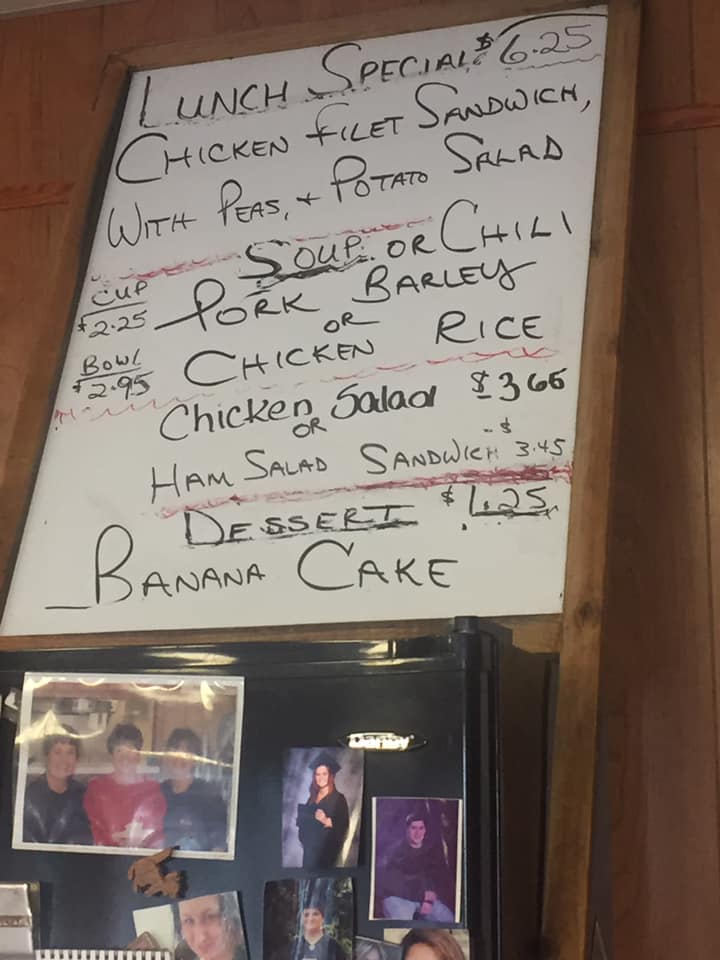 LUNCH SPECIAL $6.25
CHICKEN FILET SANDWICH,
WITH PEAS, + POTATO SALAD
SOUP OR CHILI
CUP
$2.25
PORK BARLEY
OR
BOWL
$2.95
CHICKEN RICE
Chicken Salad $3.65
OR
HAM SALAD SANDWICH - $3.45
DESSERT $1.25
BANANA CAKE
Danby